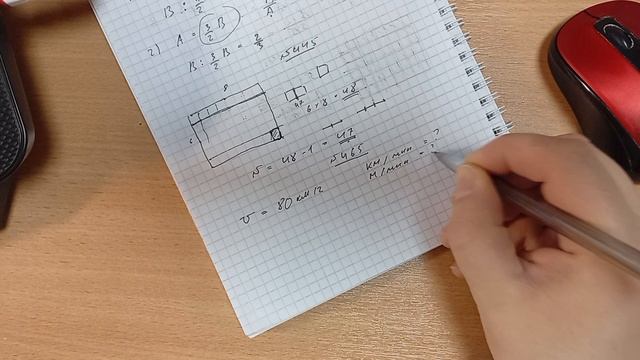 2) A = 3/2 B
B : 3/2 B = 2/3
№5445
8
6
47
6 × 8 = 48
N = 48 - 1 = 47
№5465
км/мин = ?
м/мин = ?
v = 80 км/ч